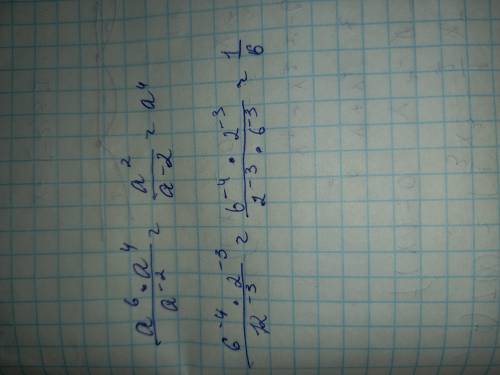 a⁶·a⁴/a⁻² = a²/a⁻² = a⁴
6⁻⁴·2⁻³/12⁻³ = 6⁻⁴·2⁻³/2⁻³·6⁻³ = 1/6